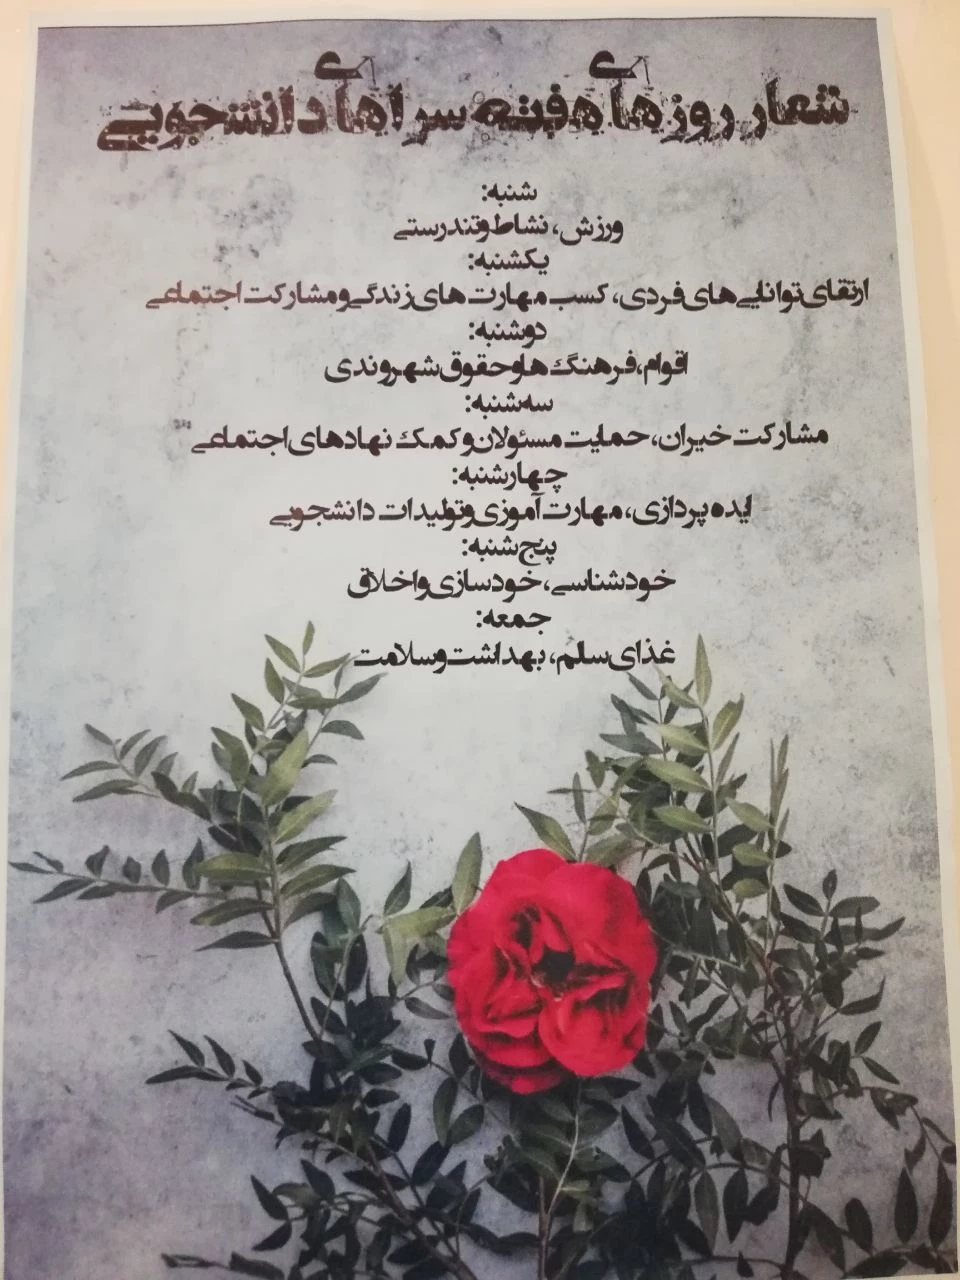 شعار روزهای هفته سراهای دانشجویی
شنبه:
ورزش، نشاط و تندرستی
یکشنبه:
ارتقای توانایی‌های فردی، کسب مهارت های زندگی و مشارکت اجتماعی
دوشنبه:
اقوام، فرهنگ ها و حقوق شهروندی
سه شنبه:
مشارکت خیران، حمایت مسئولان و کمک نهادهای اجتماعی
چهارشنبه:
ایده پردازی، مهارت آموزی و تولیدات دانشجویی
پنج شنبه:
خودشناسی، خودسازی و اخلاق
جمعه:
غذای سالم، بهداشت و سلامت